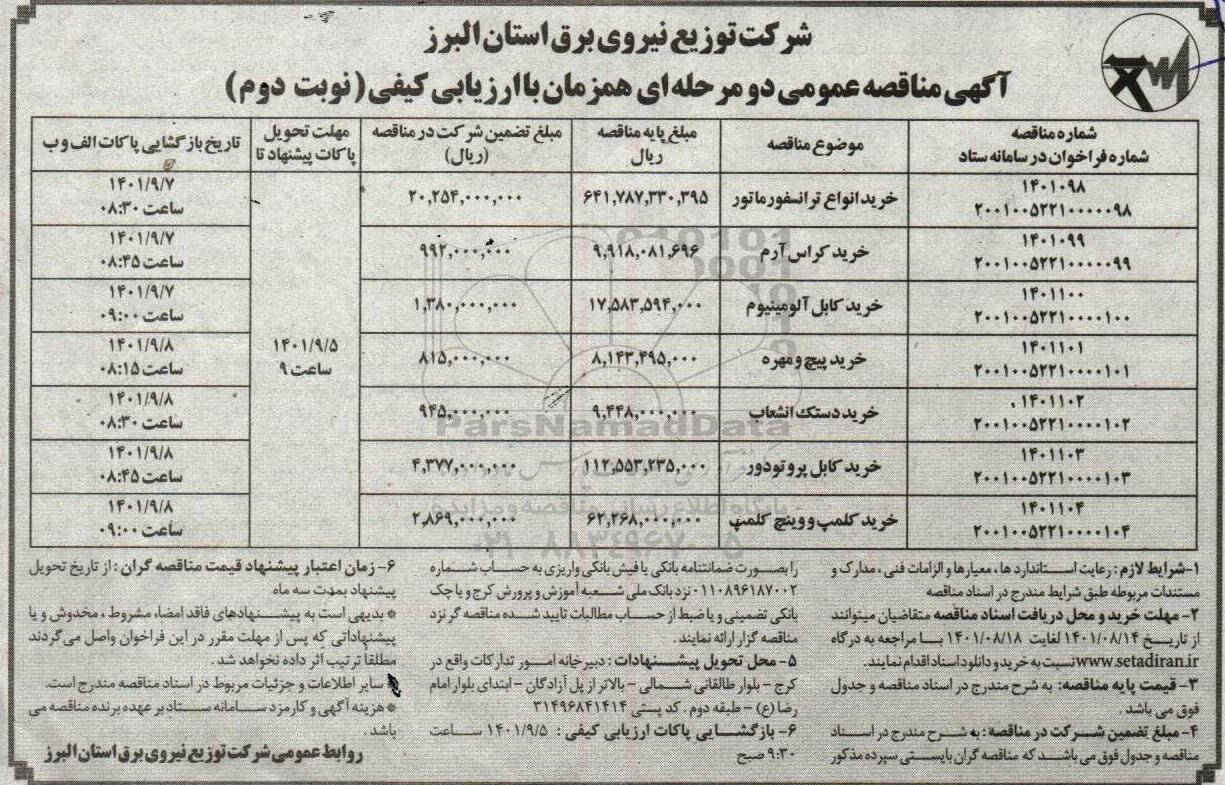 شرکت توزیع نیروی برق استان البرز
آگهی مناقصه عمومی دو مرحله ای همزمان با ارزیابی کیفی (نوبت دوم)
شماره مناقصه
شماره فراخوان در سامانه ستاد
موضوع مناقصه
مبلغ پایه مناقصه
ریال
مبلغ تضمین شرکت در مناقصه
(ریال)
مهلت تحویل
پاکات پیشنهاد تا
تاریخ بازگشایی پاکات الف و ب
۱۴۰۱۰۹۸
۲۰۰۱۰۰۵۲۲۱۰۰۰۰۹۸
خرید انواع ترانسفورماتور
۶۴۱,۷۸۷,۳۳۰,۳۹۵
۲۰,۲۵۴,۰۰۰,۰۰۰
۱۴۰۱/۹/۵
ساعت ۹
۱۴۰۱/۹/۷
ساعت ۰۸:۳۰
۱۴۰۱۰۹۹
۲۰۰۱۰۰۵۲۲۱۰۰۰۰۹۹
خرید کراس آرم
۹,۹۱۸,۰۸۱,۶۹۶
۹۹۲,۰۰۰,۰۰۰
۱۴۰۱/۹/۷
ساعت ۰۸:۴۵
۱۴۰۱۱۰۰
۲۰۰۱۰۰۵۲۲۱۰۰۰۱۰۰
خرید کابل آلومینیوم
۱۷,۵۸۳,۵۹۴,۰۰۰
۱,۳۸۰,۰۰۰,۰۰۰
۱۴۰۱/۹/۷
ساعت ۰۹:۰۰
۱۴۰۱۱۰۱
۲۰۰۱۰۰۵۲۲۱۰۰۰۱۰۱
خرید پیچ و مهره
۸,۱۴۳,۴۹۵,۰۰۰
۸۱۵,۰۰۰,۰۰۰
۱۴۰۱/۹/۸
ساعت ۰۸:۱۵
۱۴۰۱۱۰۲
۲۰۰۱۰۰۵۲۲۱۰۰۰۱۰۲
خرید دستک انشعاب
۹,۴۴۸,۰۰۰,۰۰۰
۹۴۵,۰۰۰,۰۰۰
۱۴۰۱/۹/۸
ساعت ۰۸:۳۰
۱۴۰۱۱۰۳
۲۰۰۱۰۰۵۲۲۱۰۰۰۱۰۳
خرید کابل پروتودور
۱۱۲,۵۵۳,۲۳۵,۰۰۰
۴,۳۷۷,۰۰۰,۰۰۰
۱۴۰۱/۹/۸
ساعت ۰۸:۴۵
۱۴۰۱۱۰۴
۲۰۰۱۰۰۵۲۲۱۰۰۰۱۰۴
خرید کلمپ و وینچ کلمپ
۶۲,۲۶۸,۰۰۰,۰۰۰
۲,۸۶۹,۰۰۰,۰۰۰
۱۴۰۱/۹/۸
ساعت ۰۹:۰۰
ParsNamadData
پایگاه اطلاع رسانی مناقصه و مزایده
۰۲۱-۸۸۳۴۹۶۷۰-۵
۱-شرایط لازم: رعایت استانداردها، معیارها و الزامات فنی، مدارک و
مستندات مربوطه طبق شرایط مندرج در اسناد مناقصه
۲- مهلت خرید و محل دریافت اسناد مناقصه متقاضیان میتوانند
از تاریخ ۱۴۰۱/۰۸/۱۴ لغایت ۱۴۰۱/۰۸/۱۸ با مراجعه به درگاه
www.setadiran.ir نسبت به خرید و دانلود اسناد اقدام نمایند.
۳- قیمت پایه مناقصه: به شرح مندرج در اسناد مناقصه و جدول
فوق می باشد.
۴- مبلغ تضمین شرکت در مناقصه: به شرح مندرج در اسناد
مناقصه و جدول فوق می باشد که مناقصه گران بایستی سپرده مذکور
را بصورت ضمانتنامه بانکی یا فیش بانکی واریزی به حساب شماره
۰۱۱۰۸۹۶۱۸۷۰۰۲ نزد بانک ملی شعبه آموزش و پرورش کرج و یا چک
بانکی تضمینی و یا ضبط از حساب مطالبات تایید شده مناقصه گر نزد
مناقصه گزار ارائه نمایند.
۵- محل تحویل پیشنهادات: دبیرخانه امور تدارکات واقع در
کرج - بلوار طالقانی شمالی - بالاتر از پل آزادگان - ابتدای بلوار امام
رضا (ع) - طبقه دوم. کد پستی ۳۱۴۹۶۸۴۱۴۱۴
۶- بازگشایی پاکات ارزیابی کیفی: ۱۴۰۱/۹/۵ ساعت
۹:۳۰ صبح
۶- زمان اعتبار پیشنهاد قیمت مناقصه گران: از تاریخ تحویل
پیشنهاد بمدت سه ماه
* بدیهی است به پیشنهادهای فاقد امضاء، مشروط، مخدوش و یا
پیشنهاداتی که پس از مهلت مقرر در این فراخوان واصل می گردند
مطلقاً ترتیب اثر داده نخواهد شد.
* سایر اطلاعات و جزئیات مربوط در اسناد مناقصه مندرج است.
* هزینه آگهی و کارمزد سامانه ستاد بر عهده برنده مناقصه می
باشد.
روابط عمومی شرکت توزیع نیروی برق استان البرز